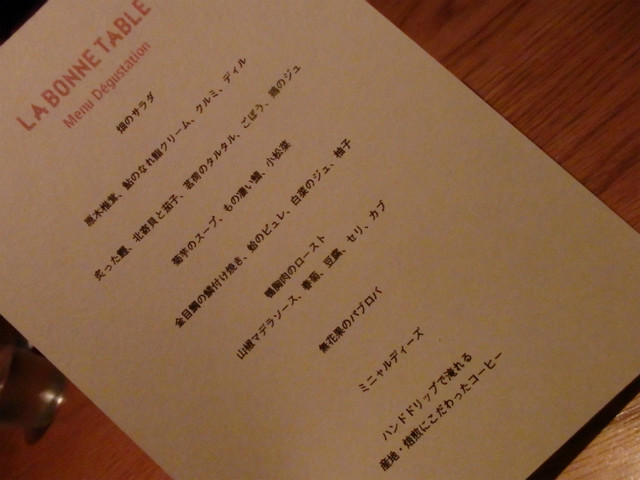 LA BONNE TABLE
Menu Dégustation
畑のサラダ
原木椎茸、鮎のなれ鮨クリーム、クルミ、ディル
炙った鰹、北寄貝と茄子、茗荷のタルタル、ごぼう、鶏のジュ
菊芋のスープ、もの凄い鰻、小松菜
金目鯛の鱗付け焼き、蛤のピュレ、白菜のジュ、柚子
鴨胸肉のロースト
山椒マデラソース、春菊、豆腐、セリ、カブ
無花果のパブロバ
ミニャルディーズ
ハンドドリップで淹れる
産地・焙煎にこだわったコーヒー